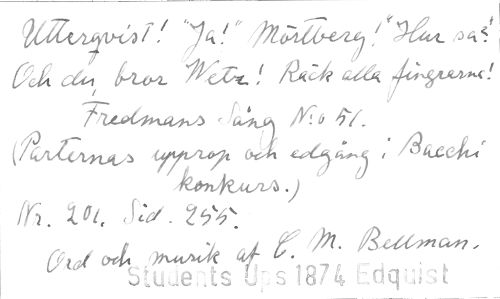 Utterqvist! "Ja!" Mörtberg! "Hur sa?"
Och du, bror Wetz! Räck alla fingrarna!
Fredmans Sång N:o 51.
(Parternas upprop och edgång i Bacchi
konkurs.)
Nr. 201. Sid. 255.
Ord och musik af C. M. Bellman.
Students Ups 1874 Edquist